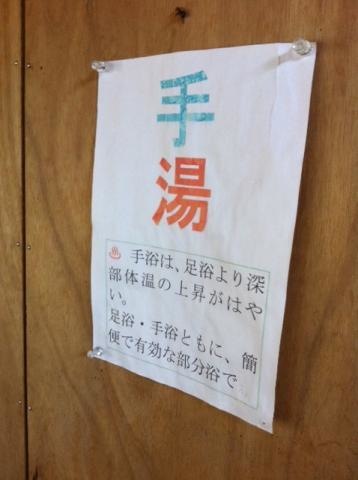 手
湯
♨ 手浴は、足浴より深
部体温の上昇がはや
い。
足浴・手浴ともに、簡
便で有効な部分浴で